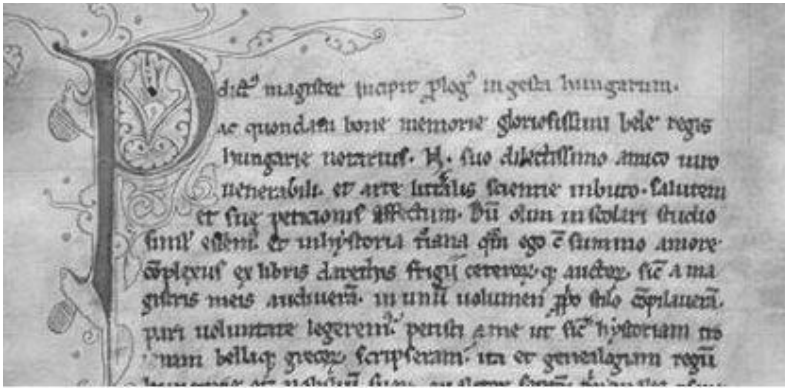 P dictꝰ magister incipit ꝓlogꝰ in gesta hungarum.
ac quondam bone memorie gloriosissimi bele regis
hungarie notarius. N. suo dilectissimo amico uiro
uenerabili. et arte litt̃alis scientie inbuto. salutem
et sue peticionis effectum. Dū olim in scolari studio
simul essemꝰ. et in hystoria t̃iana qm̄ ego c̄ summo amore
cōplexus ex libris darethis frigii ceteroꝝ qꝫ auctoꝝ. sic̄ a ma
gistris meis audiuerā. in unū uolumen ꝓp̃o stilo cōpilauerā.
pari uoluntate legeremꝰ. petisti a me ut sic̄ hystoriam tro
ianam bellaqꝫ grecoꝝ scripseram. ita et genealogiam regū